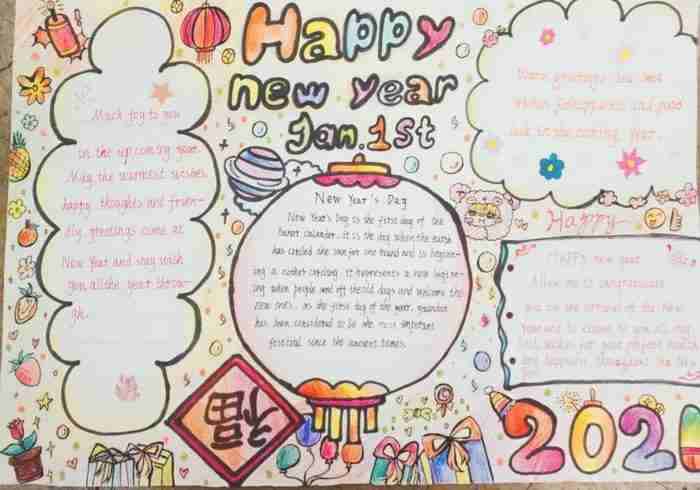 Happy
new year
Jan.1st
Much joy to you
in the up coming year.
May the warmest wishes,
happy thoughts and frien-
dly greetings come at
New Year and stay with
you all the year throu-
gh.
New Year's Day
New Year's Day is the first day of the
lunar calendar. it is the day when the earth
has circled the sun for one round and is beginn-
ing a another circling. it represents a new begine-
ing when people send off the old days and welcome the
new ones. as the first day of the year, yuandan
has been considered to be the most important
festival since the ancient times.
福
Warm greetings and best
wishes for happiness and good
luck in the coming year.
Happy
HAPPY new year
Allow me to congratulate
you on the arrival of the New
Year and to
to you all my
best wishes for your perfect health
and
the New
202